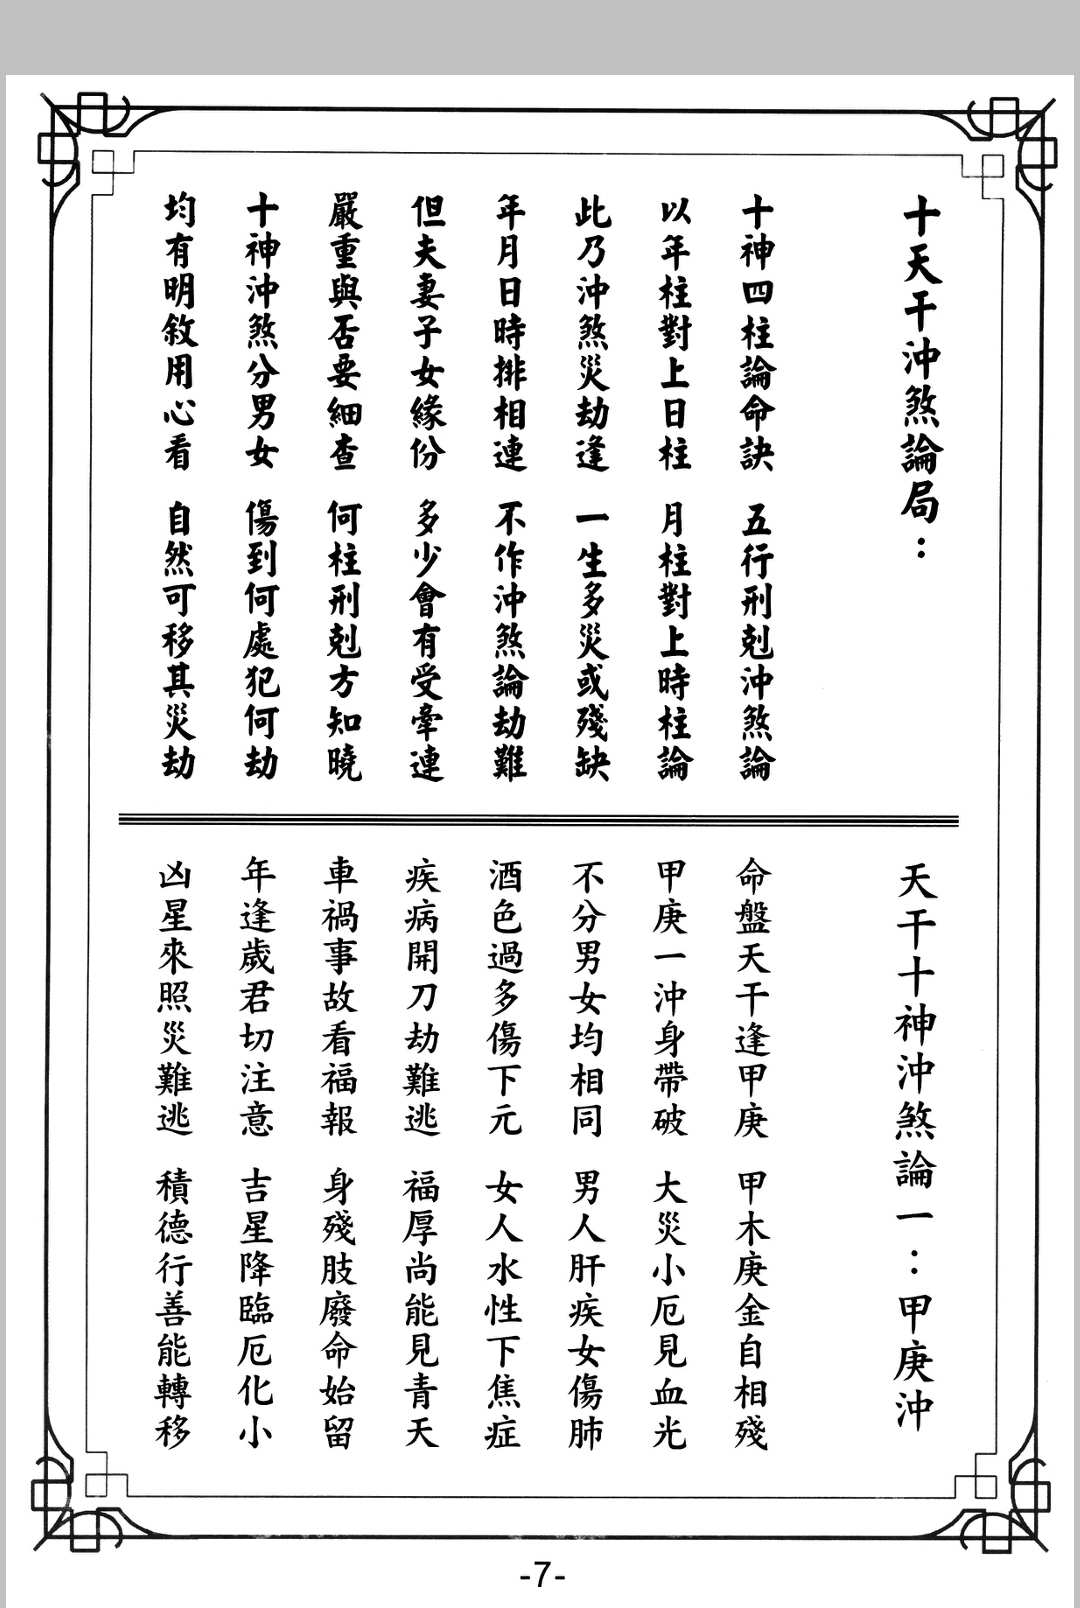 十天干沖煞論局：
十神四柱論命訣　五行刑剋沖煞論
以年柱對上日柱　月柱對上時柱論
此乃沖煞災劫逢　一生多災或殘缺
年月日時排相連　不作沖煞論劫難
但夫妻子女緣份　多少會有受牽連
嚴重與否要細查　何柱刑剋方知曉
十神沖煞分男女　傷到何處犯何劫
均有明敘用心看　自然可移其災劫
天干十神沖煞論一：甲庚沖
命盤天干逢甲庚　甲木庚金自相殘
甲庚一沖身帶破　大災小厄見血光
不分男女均相同　男人肝疾女傷肺
酒色過多傷下元　女人水性下焦症
疾病開刀劫難逃　福厚尚能見青天
車禍事故看福報　身殘肢廢命始留
年逢歲君切注意　吉星降臨厄化小
凶星來照災難逃　積德行善能轉移
-7-